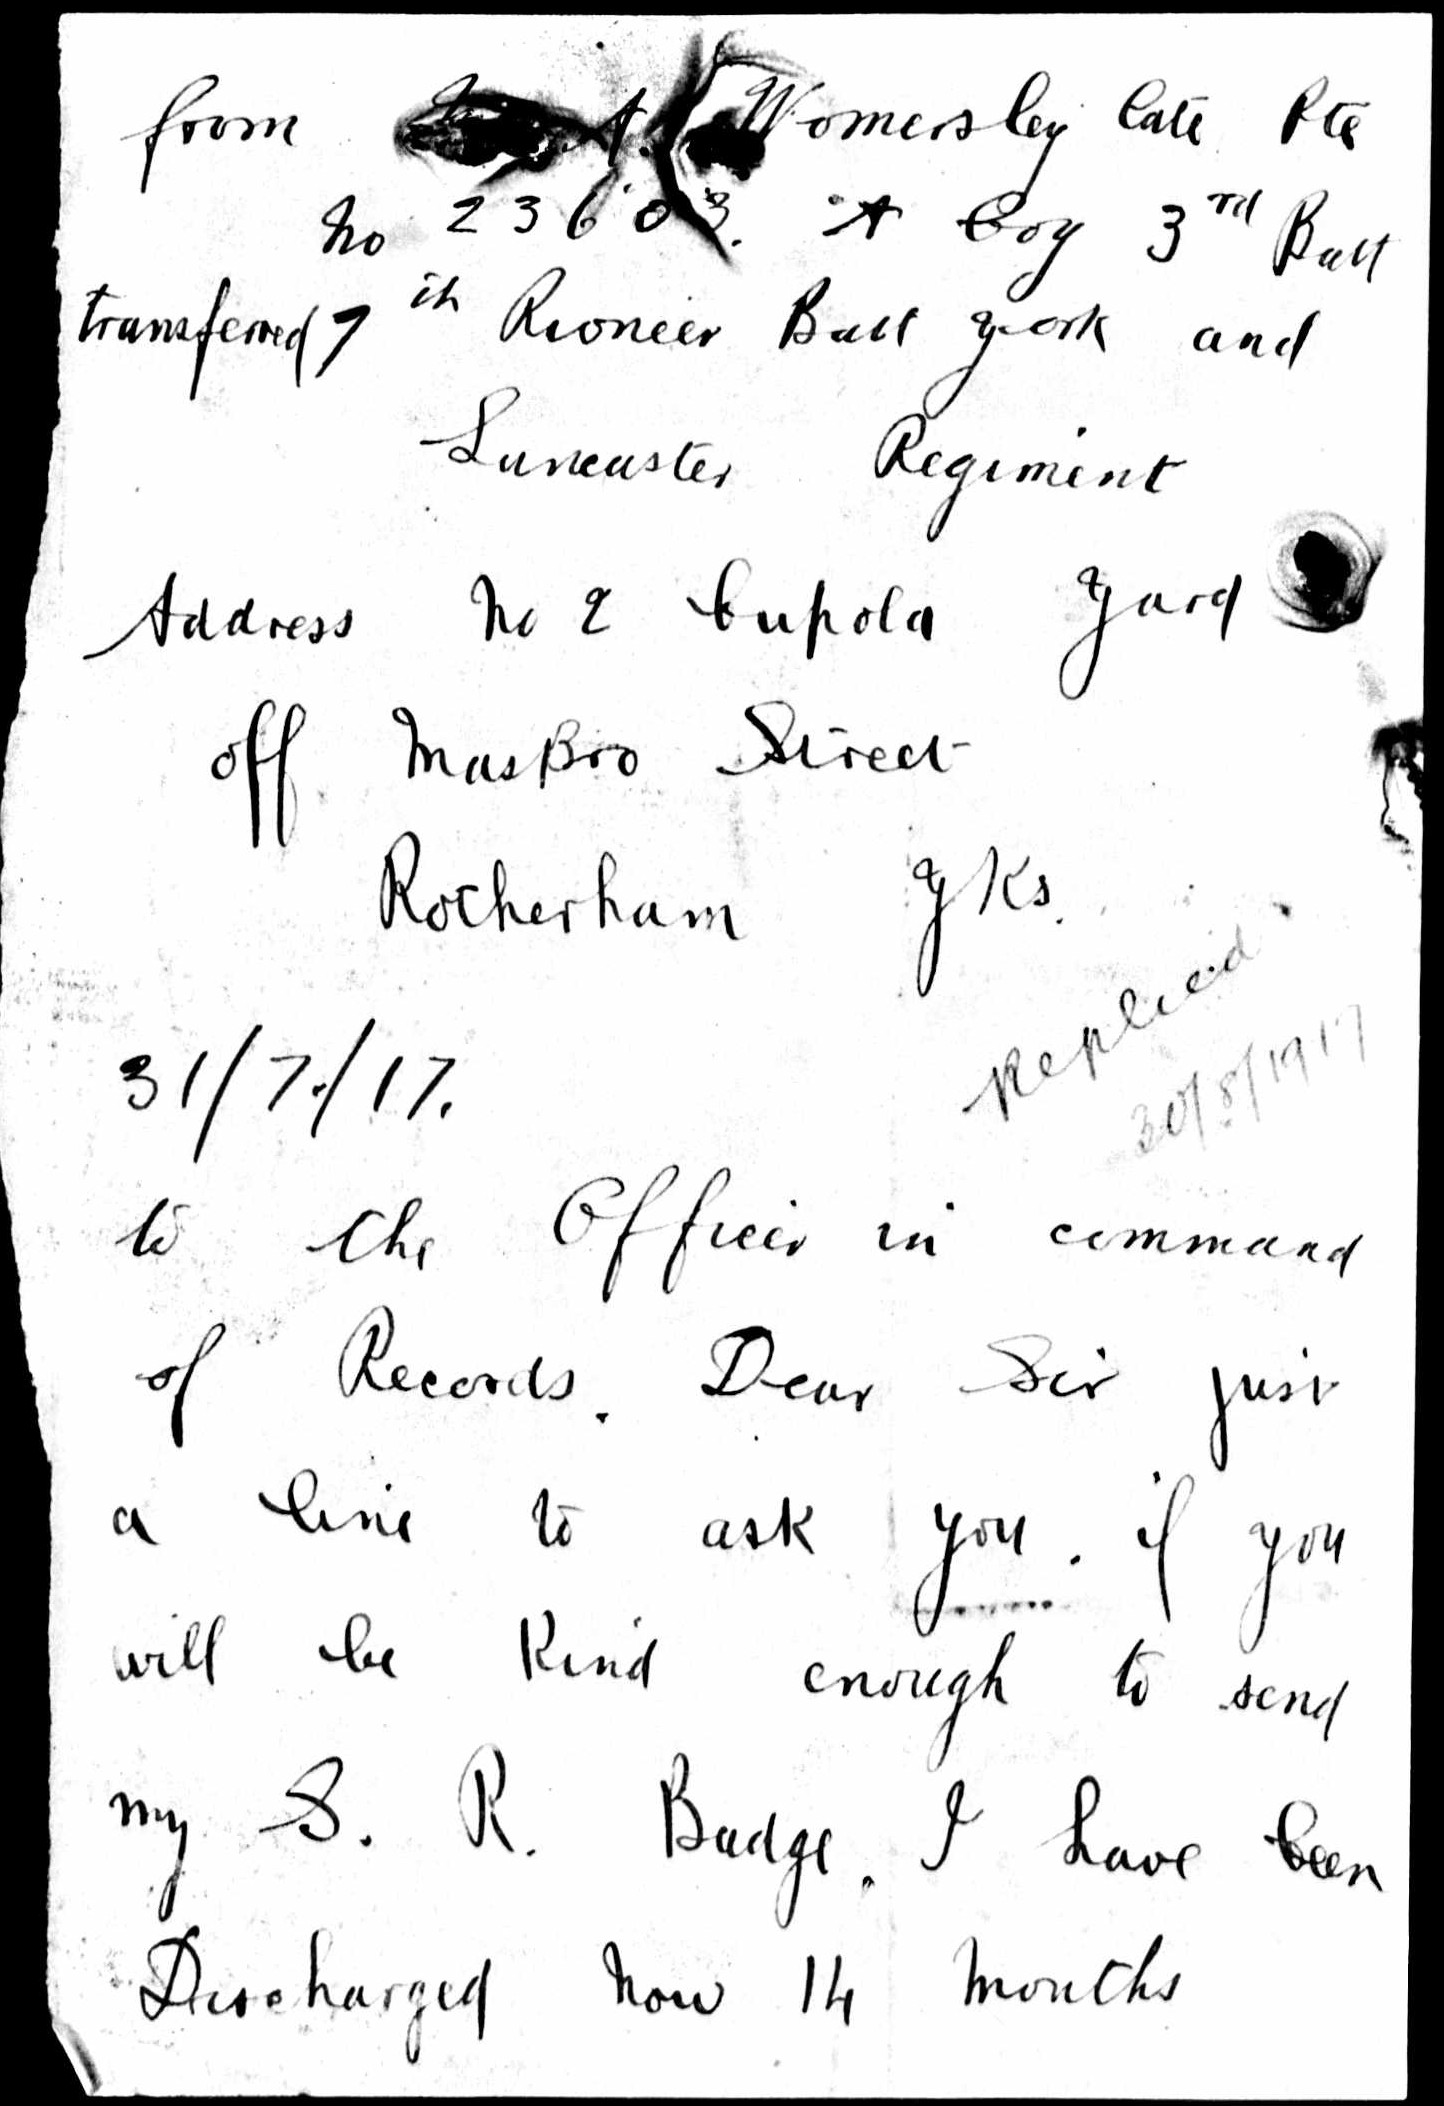 from A. Womersley late Pte
No 23603. A Coy 3rd Batt
transferred 7th Pioneer Batt York and
Lancaster Regiment
Address No 2 Cupola Yard
off MasBro Street
Rotherham Yks.
Replied
30/8/1917
31/7./17.
to the Officer in command
of Records. Dear Sir just
a line to ask you. if you
will be Kind enough to send
my S. R. Badge. I have been
Discharged Now 14 Months